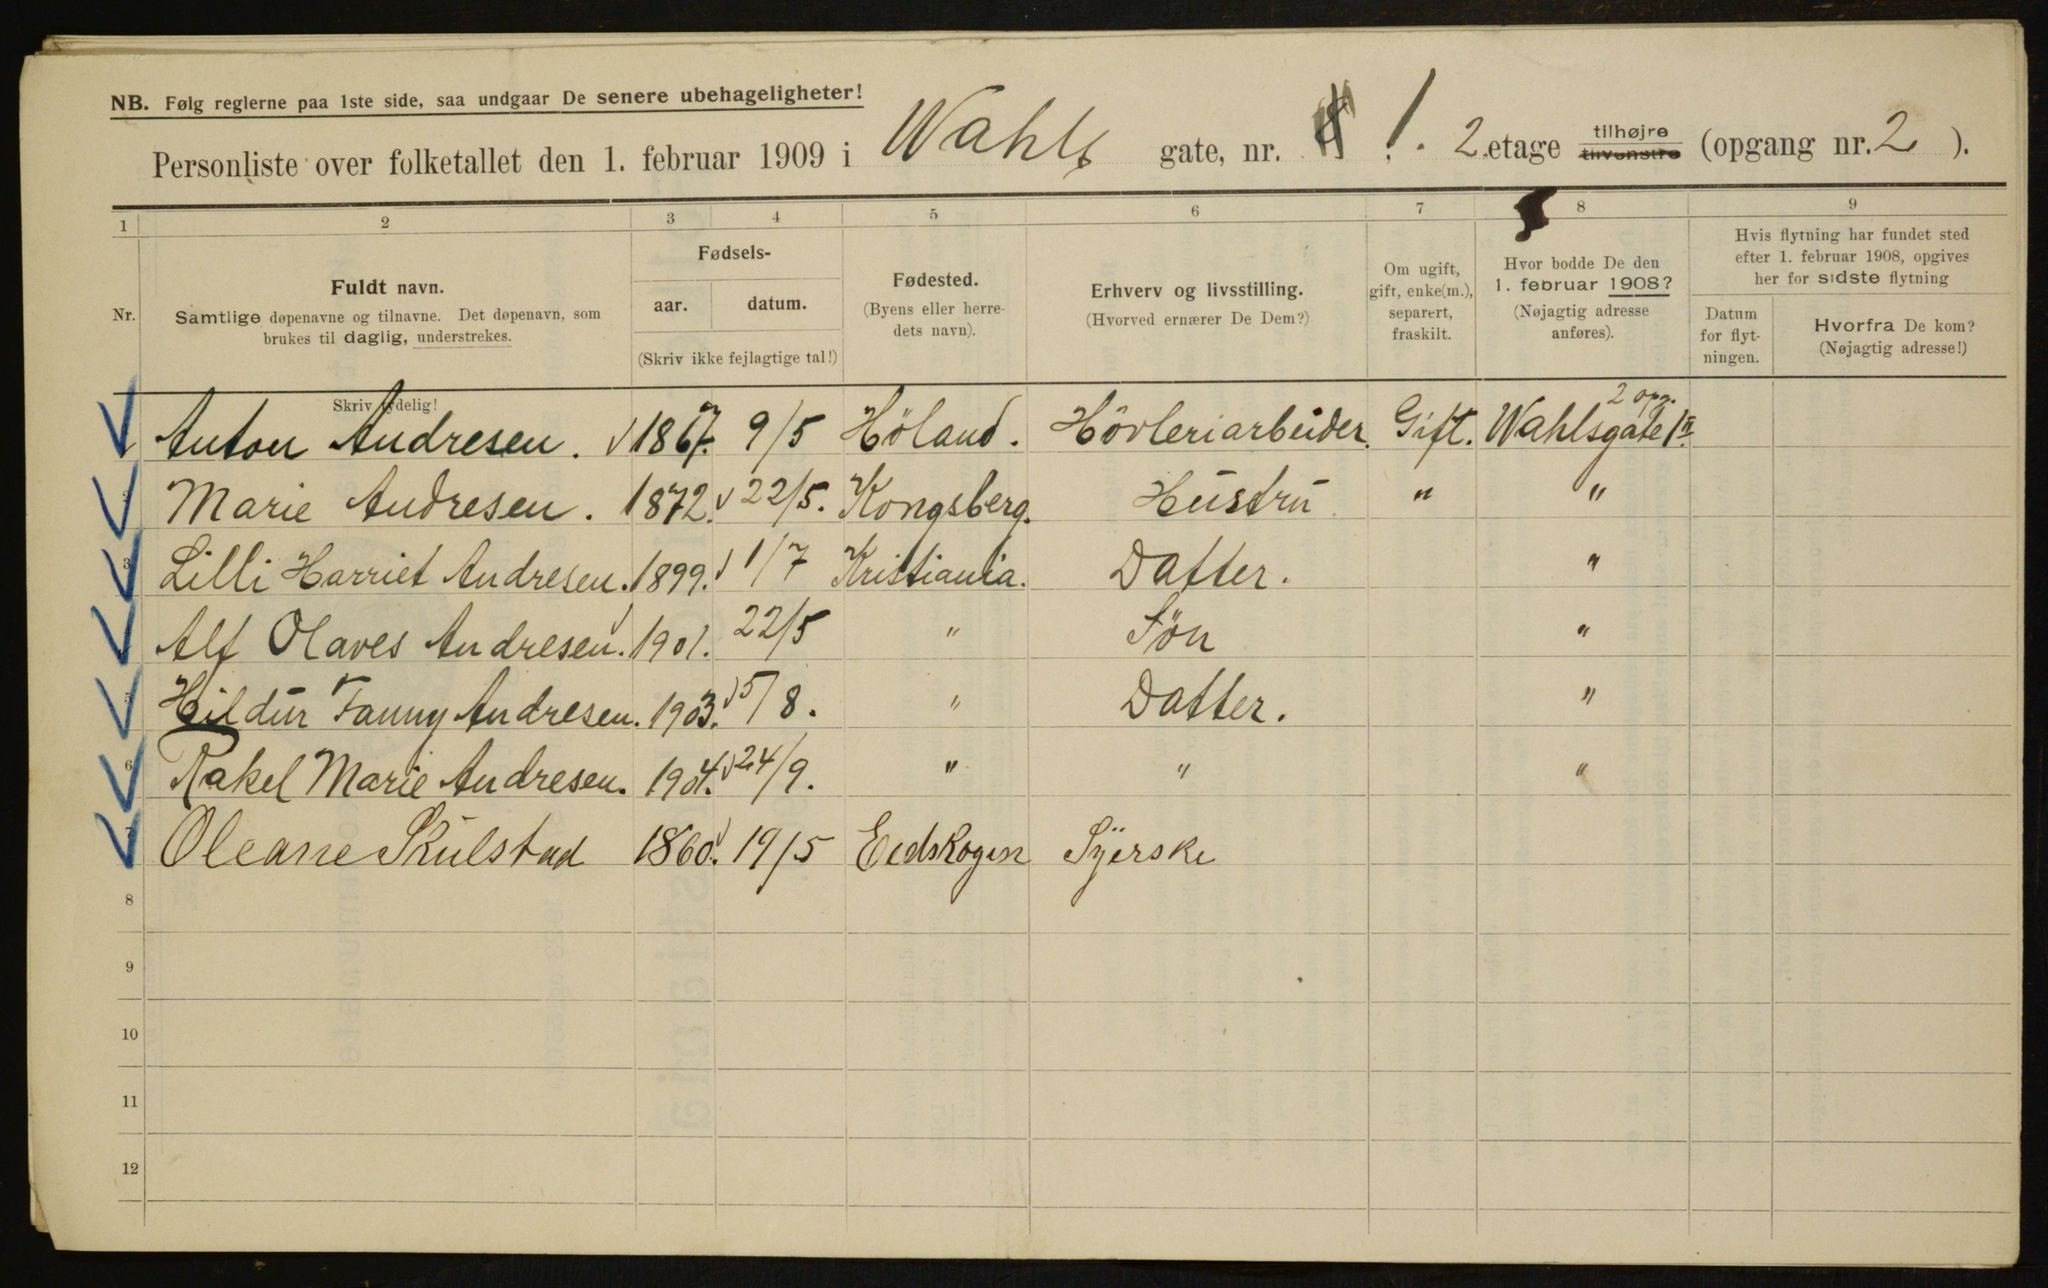 NB. Følg reglerne paa 1ste side, saa undgaar De senere ubehageligheter!
Personliste over folketallet den 1. februar 1909 i Wahls gate, nr. 1. 2. etage tilhøjre tilvenstre (opgang nr. 2 ).
1 2 3 4 5 6 7 8 9
Nr.
Fuldt navn.
Samtlige døpenavne og tilnavne. Det døpenavn, som
brukes til daglig, understrekes.
Fødsels-
aar. datum.
(Skriv ikke fejlagtige tal!)
Fødested.
(Byens eller herre-
dets navn).
Erhverv og livsstilling.
(Hvorved ernærer De Dem?)
Om ugift,
gift, enke(m.),
separert,
fraskilt.
Hvor bodde De den
1. februar 1908?
(Nøjagtig adresse
anføres).
Hvis flytning har fundet sted
efter 1. februar 1908, opgives
her for sidste flytning
Datum
for flyt-
ningen.
Hvorfra De kom?
(Nøjagtig adresse!)
Skriv tydelig!
2 opg.
Anton Andresen. 1867. 9/5 Höland. Hövleriarbeider. Gift. Wahlsgate 1 II
Marie Andresen. 1872. 22/5. Kongsberg. Hustru " "
3 Lilli Harriet Andresen. 1899. 1/7 Kristiania. Datter. "
Alf Olaves Andresen. 1901. 22/5 " Sön "
5 Hildur Fanny Andresen. 1903. 5/8. " Datter. "
6 Rakel Marie Andresen. 1904. 24/9. " " "
7 Oleane Skulstad 1860. 19/5 Eidskogen Syerske
8
9
10
11
12